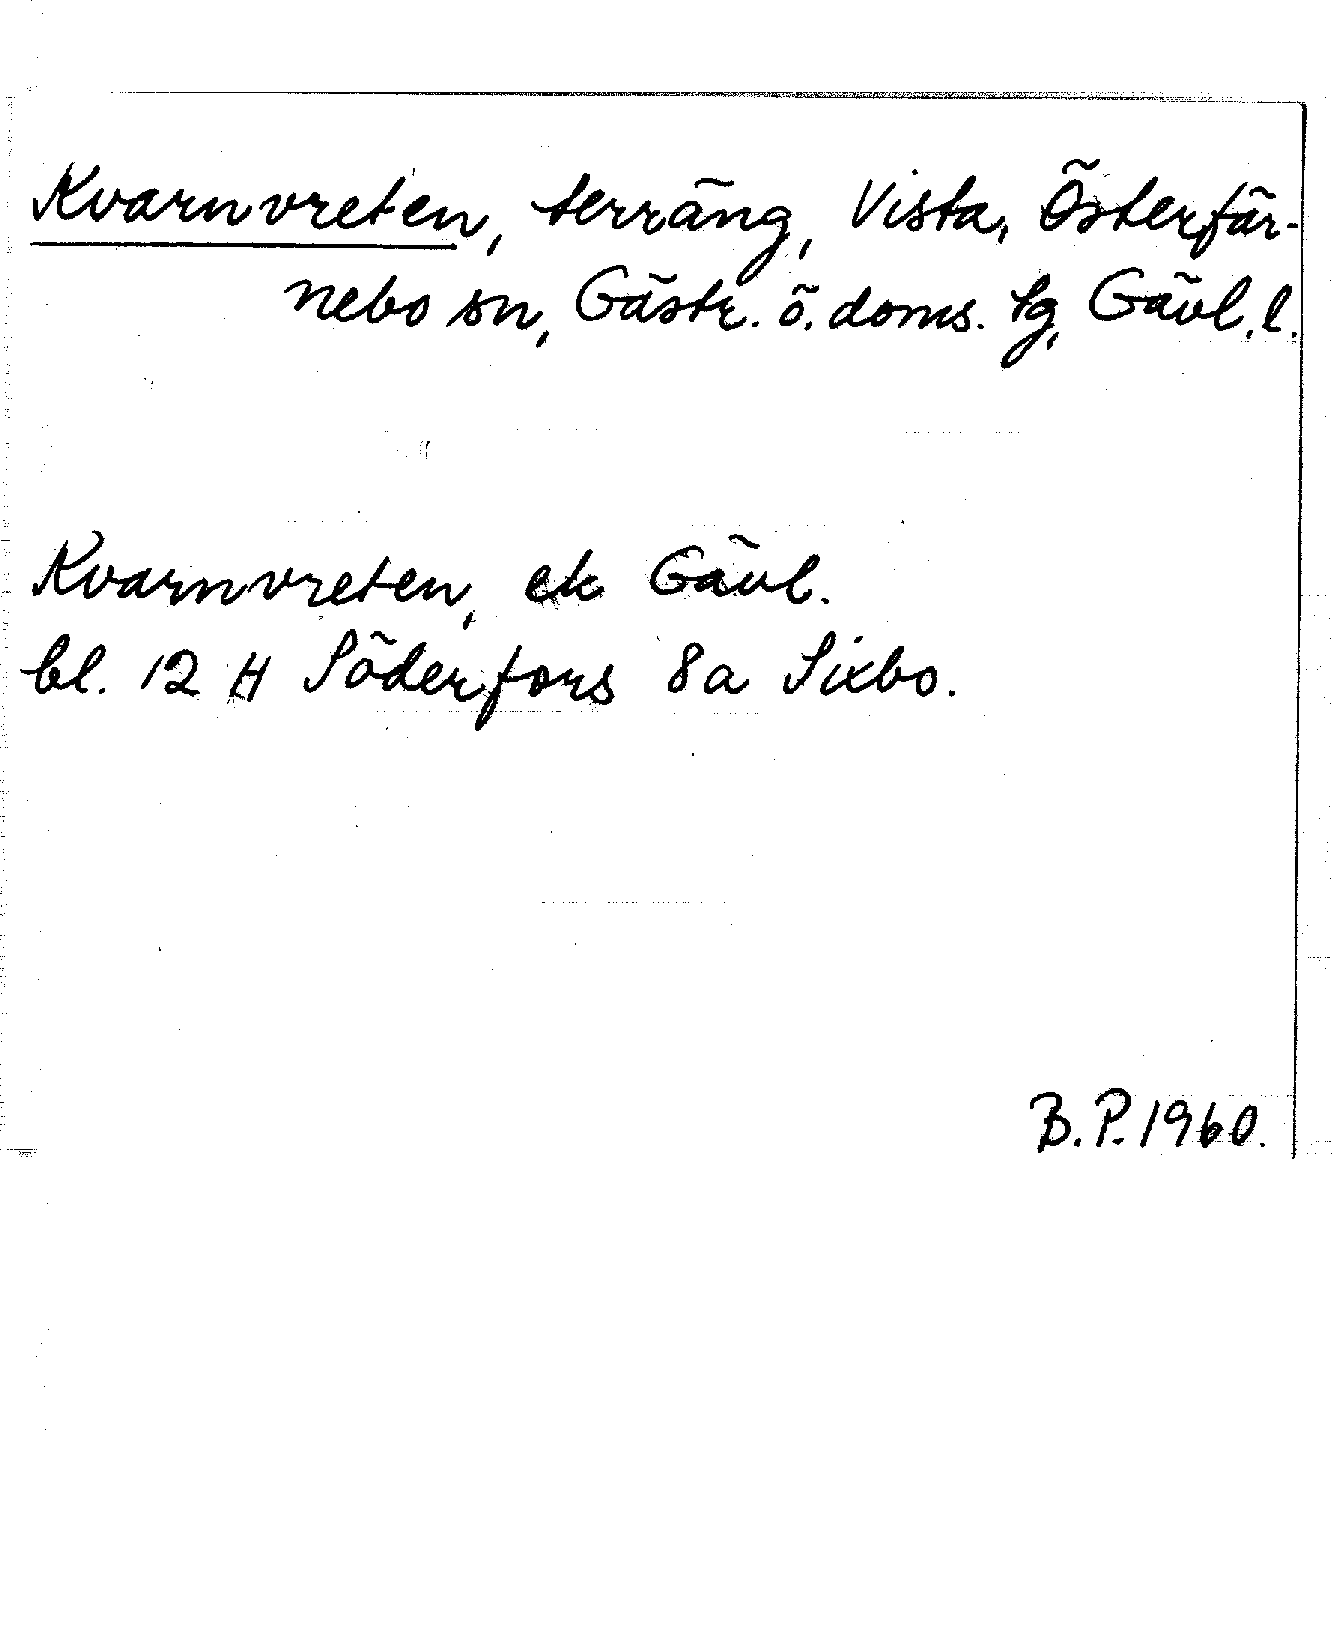 Kvarnvreten, terräng, Vista, Österfär-
nebo sn, Gästr. ö. doms. tg, Gävl. l.
Kvarnvreten, ek Gävl.
bl. 12 H Söderfors 8a Sixbo.
B.P. 1960.